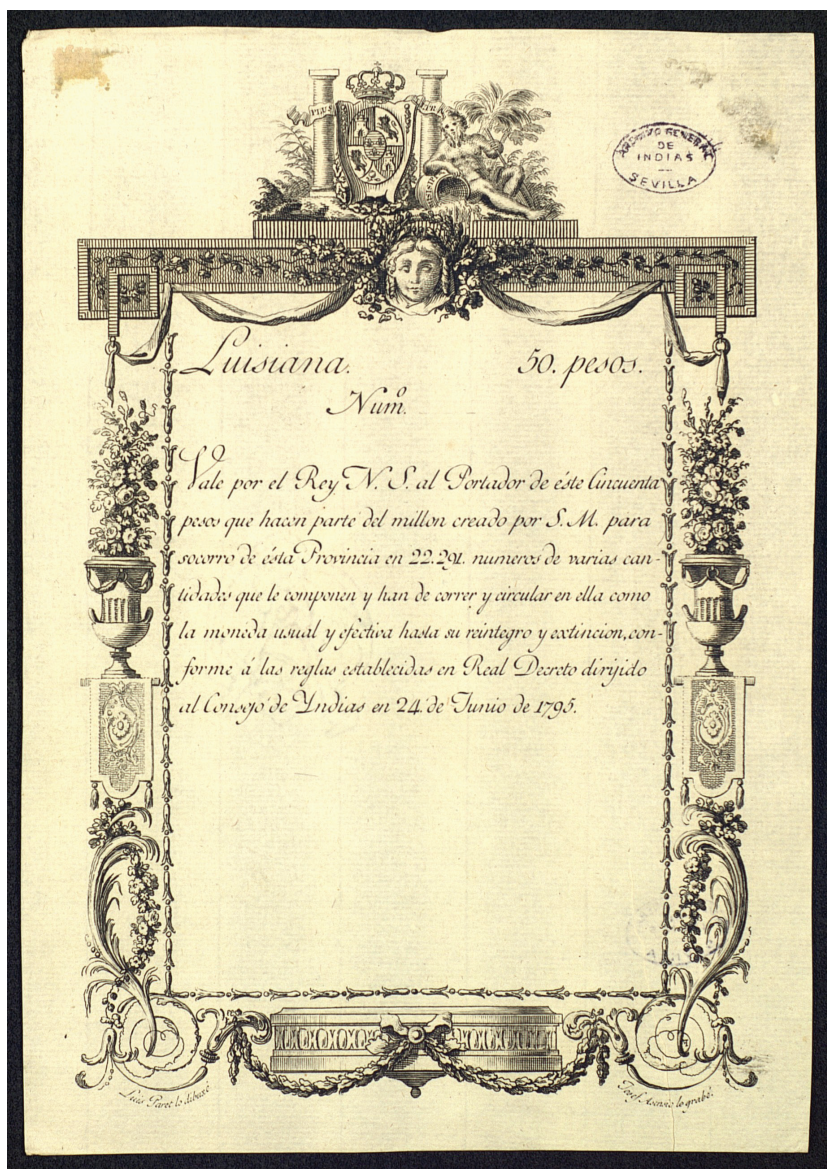 PLUS ULTRA
ARCHIVO GENERAL
DE
INDIAS
SEVILLA
Luisiana. 50. pesos.
Numº.
Vale por el Rey N. S. al Portador de éste Cincuenta
pesos que hacen parte del millon creado por S. M. para
socorro de ésta Provincia en 22.291. numeros de varias can-
tidades que le componen y han de correr y circular en ella como
la moneda usual y efectiva hasta su reintegro y extincion, con-
forme á las reglas establecidas en Real Decreto dirijido
al Consejo de Yndias en 24. de Junio de 1795.
Luis Paret lo dibuxó
Josef Asensio lo grabó.